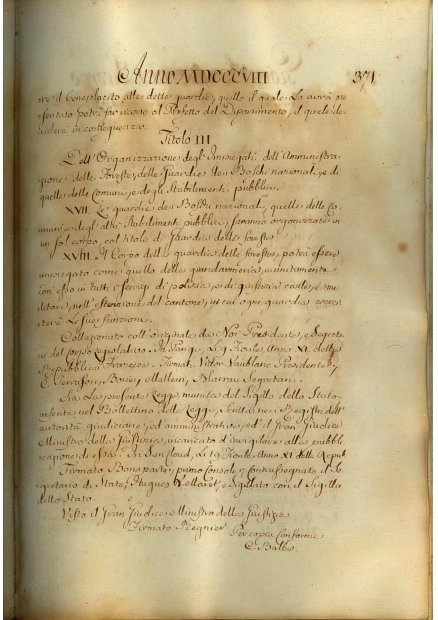 Anno MDCCCVIII 371
il beneplacito alle dette guardie, quello il quale lo avrà
sentato potrà far ricorso al Prefetto del Dipartimento, il quale de
in conseguenza.
Titolo III
Dell'Organizzazione degl'Impiegati dell'Amministra
zione delle Foreste, delle Guardie dei Boschi nazionali, e di
quelle delle Comuni, e degli Stabilimenti pubblici.
XVII. Le guardie dei Boschi nazionali, quelle delle Co
muni, e degl'altri Stabilimenti pubblici, saranno organizzate in
un sol corpo, col titolo di Guardia delle foreste.
XVIII. Il Corpo della guardia delle foreste, potrà essere
impiegato come quello della giandarmeria, e unitamente
con esso in tutti i servigi di polizia, e di giustizia, e mi
litare, nell'estenzione del cantone, in cui ogni guardia eserci
terà le sue funzioni.
Collazionato coll'originale da Noi Presidente, e Segreta
ri del Corpo Legislativo. In Parigi, Li 9 Fiorile, Anno XI della
Repubblica Francese. Firmati Viktor Vaublanc Presidente;
Terrasson, Bord, Mallein, Segretari.
Sia La presente Legge munita del Sigillo dello Stato
inserita nel Bollettino delle Leggi, Scritta nei Registri dell'
autorità giudiziarie, ed amministrative, ed il Gran Giudice
Ministro della Giustizia, incaricato d'invigilare alla pubbli
cazione di essa. In San Cloud, Li 19 Fiorile Anno XI della Repub
Firmato Bonaparte, primo Console, Contrasegnato il Se
gretario di Stato, Hugues Maret, e Sigelato con il Sigillo
dello Stato.
Visto il Gran Giudice Ministro della Giustizia
Firmato Regnier
Per copia Conforme
C. Balbo